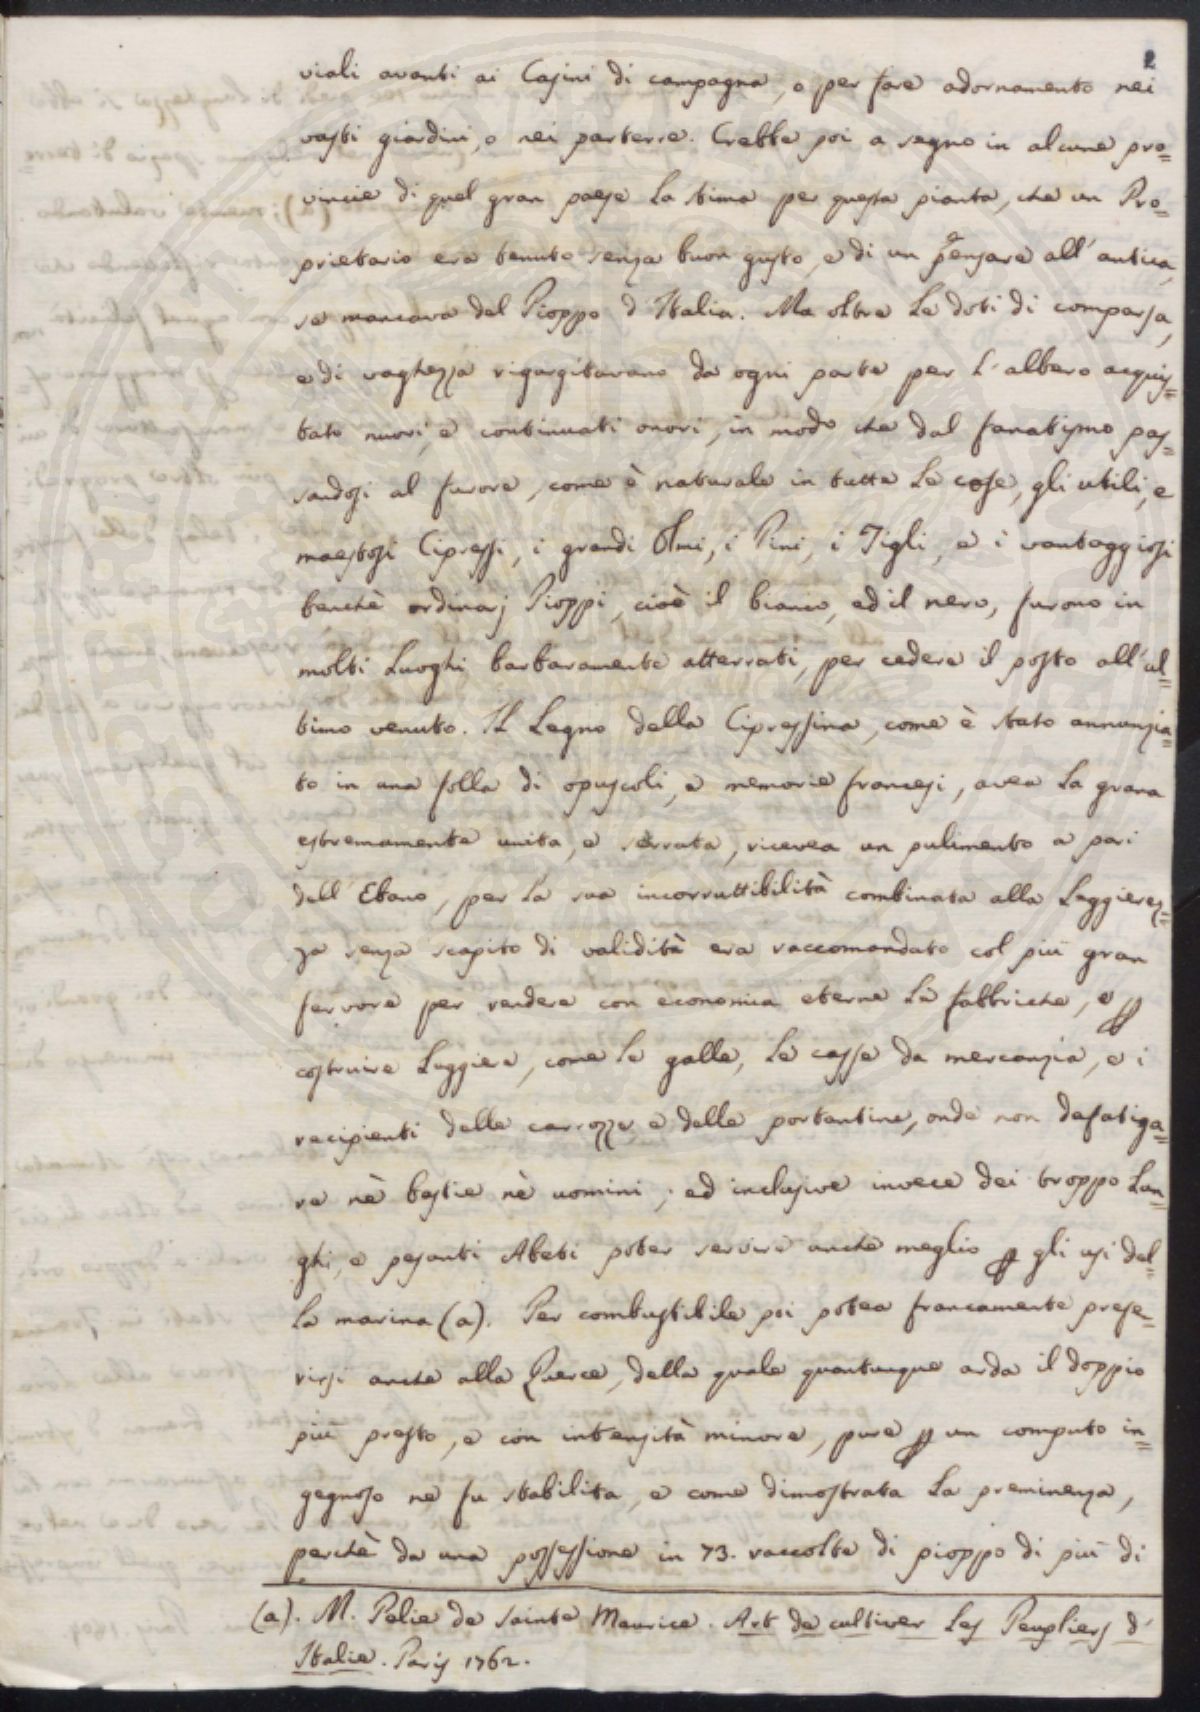 2
viali avanti ai Casini di campagna, o per fare adornamento nei
vasti giardini, o nei parterre. Crebbe poi a segno in alcune pro=
vincie di quel gran paese la stima per questa pianta, che un Pro=
prietario era tenuto senza buon gusto, e di un pensare all'antica,
se mancava del Pioppo d'Italia. Ma oltre le doti di comparsa,
e di vaghezza rigurgitavano da ogni parte per l'albero acquis=
tato nuovi, e continuati onori, in modo che dal fanatismo pas=
sandosi al furore, come è naturale in tutte le cose, gli utili, e
maestosi Cipressi, i grandi Olmi, i Pini, i Tigli, e i vantaggiosi
benchè ordinarj Pioppi, cioè il bianco, ed il nero, furono in
molti luoghi barbaramente atterrati, per cedere il posto all'ul=
timo venuto. Il Legno della Cipressina, come è stato annunzia=
to in una folla di opuscoli, e memorie francesi, avea la grana
estremamente unita, e serrata, ricevea un pulimento a pari
dell'Ebano, per la sua incorruttibilità combinata alla leggierez=
za senza scapito di validità era raccomandato col più gran
fervore per rendere con economia eterne le fabbriche, e p
costruire leggiere, come le galle, le casse da mercanzia, e i
recipienti delle carrozze e delle portantine, onde non defatiga=
re nè bestie nè uomini; ed inclusive invece dei troppo lun=
ghi, e pesanti Abeti poter servire anche meglio p gli usi del=
la marina (a). Per combustibile poi potea francamente prefe=
rirsi anche alla Querce, della quale quantunque arda il doppio
più presto, e con intensità minore, pure p un computo in=
gegnoso ne fu stabilita, e come dimostrata la preminenza,
perchè da una possessione in 73. raccolte di pioppo di più di
(a). M. Pelie de Sainte Maurice. Art de cultiver les Peupliers d'
Italie. Paris 1762.